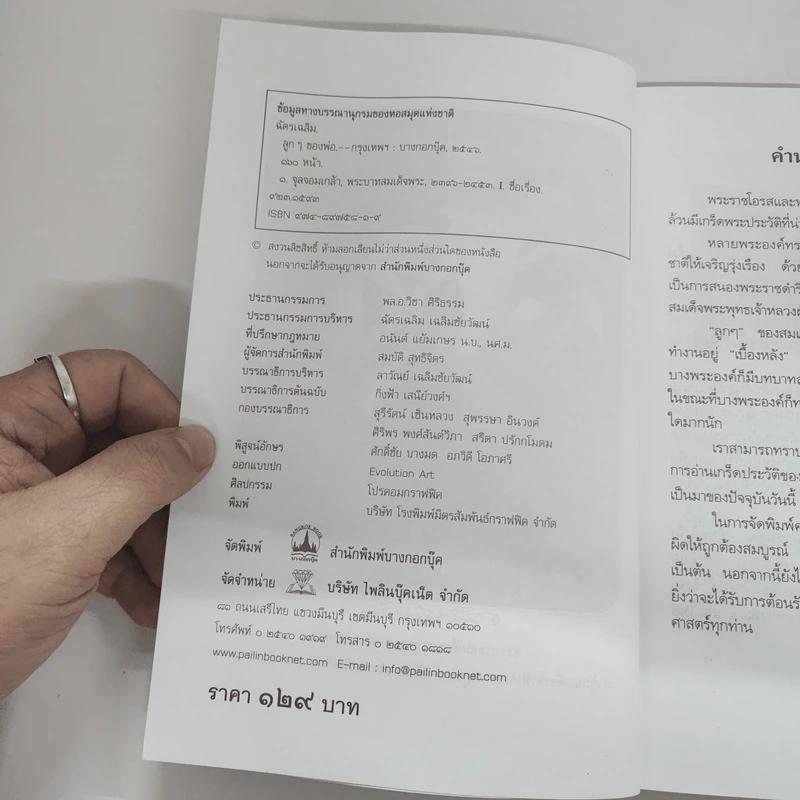 ข้อมูลทางบรรณานุกรมของหอสมุดแห่งชาติ
ฉัตรเฉลิม.
ลูก ๆ ของพ่อ.--กรุงเทพฯ : บางกอกบุ๊ค, ๒๕๔๖.
๑๖๐ หน้า.
๑. จุลจอมเกล้า, พระบาทสมเด็จพระ, ๒๓๙๖-๒๔๕๓. I. ชื่อเรื่อง.
๙๒๓.๑๕๙๓
ISBN ๙๗๔-๘๙๗๕๘-๑-๙
© สงวนลิขสิทธิ์ ห้ามลอกเลียนไม่ว่าส่วนหนึ่งส่วนใดของหนังสือ
นอกจากจะได้รับอนุญาตจาก สำนักพิมพ์บางกอกบุ๊ค
ประธานกรรมการ พล.อ.วิชา ศิริธรรม
ประธานกรรมการบริหาร ฉัตรเฉลิม เฉลิมชัยวัฒน์
ที่ปรึกษากฎหมาย อนันต์ แย้มเกษร น.บ., นศ.ม.
ผู้จัดการสำนักพิมพ์ สมบัติ สุทธิจิตร
บรรณาธิการบริหาร ลาวัณย์ เฉลิมชัยวัฒน์
บรรณาธิการต้นฉบับ กิ่งฟ้า เสนีย์วงศ์ฯ
กองบรรณาธิการ สุรีรัตน์ เซ็นหลวง สุพรรษา อินวงศ์
ศิริพร พงศ์สันต์วิภา สริตา ปรักกโมดม
พิสูจน์อักษร ศักดิ์ชัย บางมด อภวิดี โอภาศรี
ออกแบบปก Evolution Art
ศิลปกรรม โปรคอมกราฟฟิค
พิมพ์ บริษัท โรงพิมพ์มิตรสัมพันธ์กราฟฟิค จำกัด
จัดพิมพ์ BANGKOK BOOK บางกอกบุ๊ค สำนักพิมพ์บางกอกบุ๊ค
จัดจำหน่าย บริษัท ไพลินบุ๊คเน็ต จำกัด
๘๑ ถนนเสรีไทย แขวงมีนบุรี เขตมีนบุรี กรุงเทพฯ ๑๐๕๑๐
โทรศัพท์ ๐ ๒๕๔๐ ๑๙๑๙ โทรสาร ๐ ๒๕๔๐ ๑๘๑๘
www.pailinbooknet.com E-mail : info@pailinbooknet.com
ราคา ๑๒๙ บาท
พระราชโอรสและ
ล้วนมีเกร็ดพระประวัติที่
หลายพระองค์
ชาติให้เจริญรุ่งเรือง
เป็นการสนองพระราช
สมเด็จพระพุทธเจ้าหลวง
"ลูกๆ" ของ
ทำงานอยู่ "เบื้องหลัง"
บางพระองค์ก็มีบทบาท
ในขณะที่บางพระองค์ก็
ใดมากนัก
เราสามารถ
การอ่านเกร็ดประวัติของ
เป็นมาของปัจจุบันวันนี้
ในการจัดพิมพ์
ผิดให้ถูกต้องสมบูรณ์
เป็นต้น นอกจากนี้ยัง
ยิ่งว่าจะได้รับการต้อนรับ
ศาสตร์ทุกท่าน